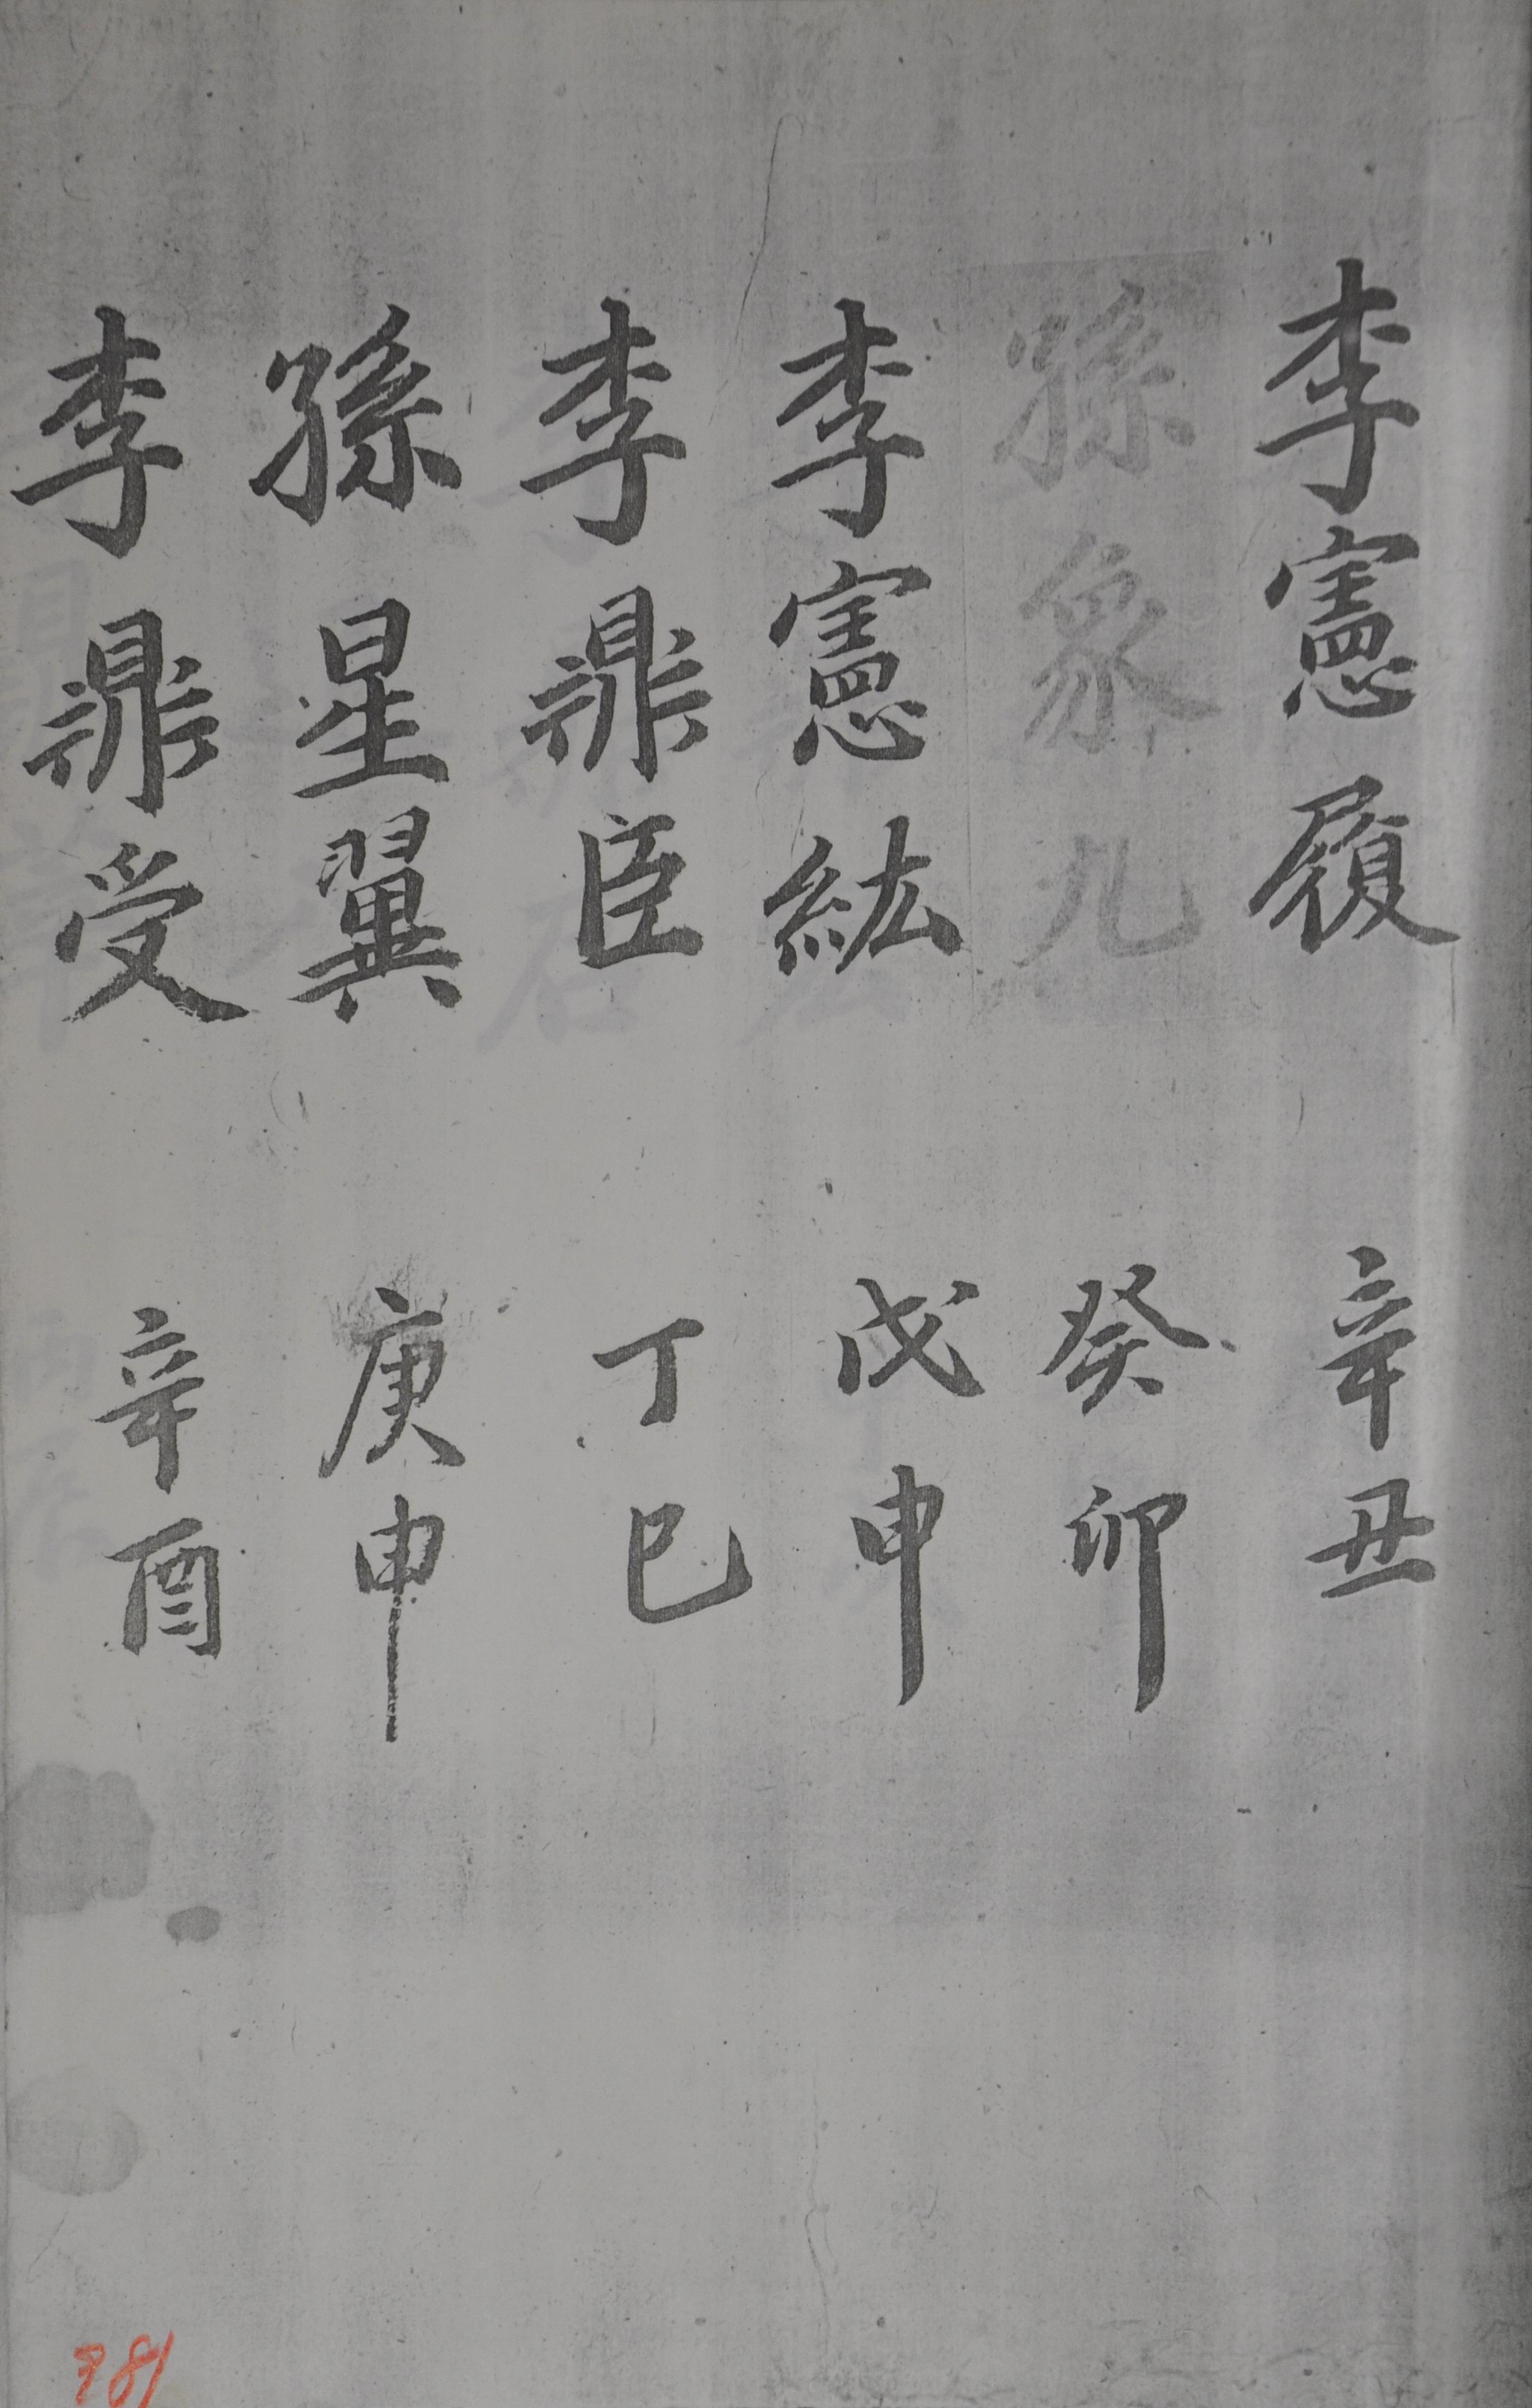 李憲履 辛丑
孫象九 癸卯
李憲紘 戊申
李鼎臣 丁巳
孫星翼 庚申
李鼎受 辛酉